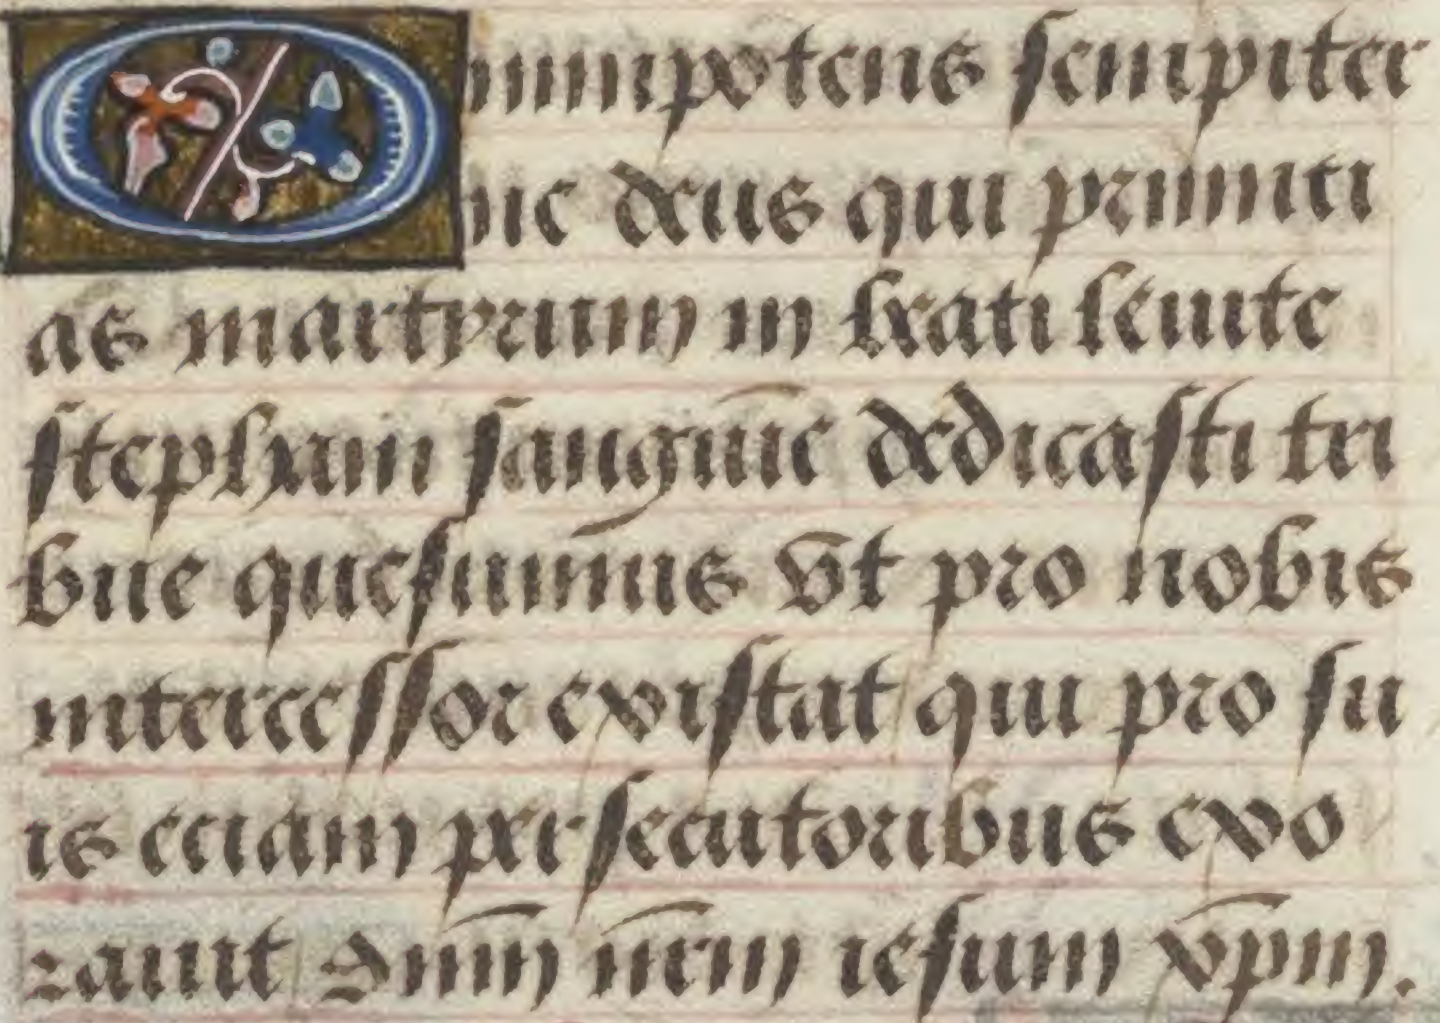 Omnipotens sempiter
ne deus qui primiti
as martyrum in beati leuite
stephani sanguīe dedicasti tri
bue quesumus vt pro nobis
intercessor existat qui pro su
is eciam persecutoribus exo
rauit dn̄m nr̄m iesum xp̄m.